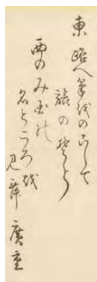 東路へ筆をのこして
旅のそら
西のみ国の
名ところを
見舞
廣重